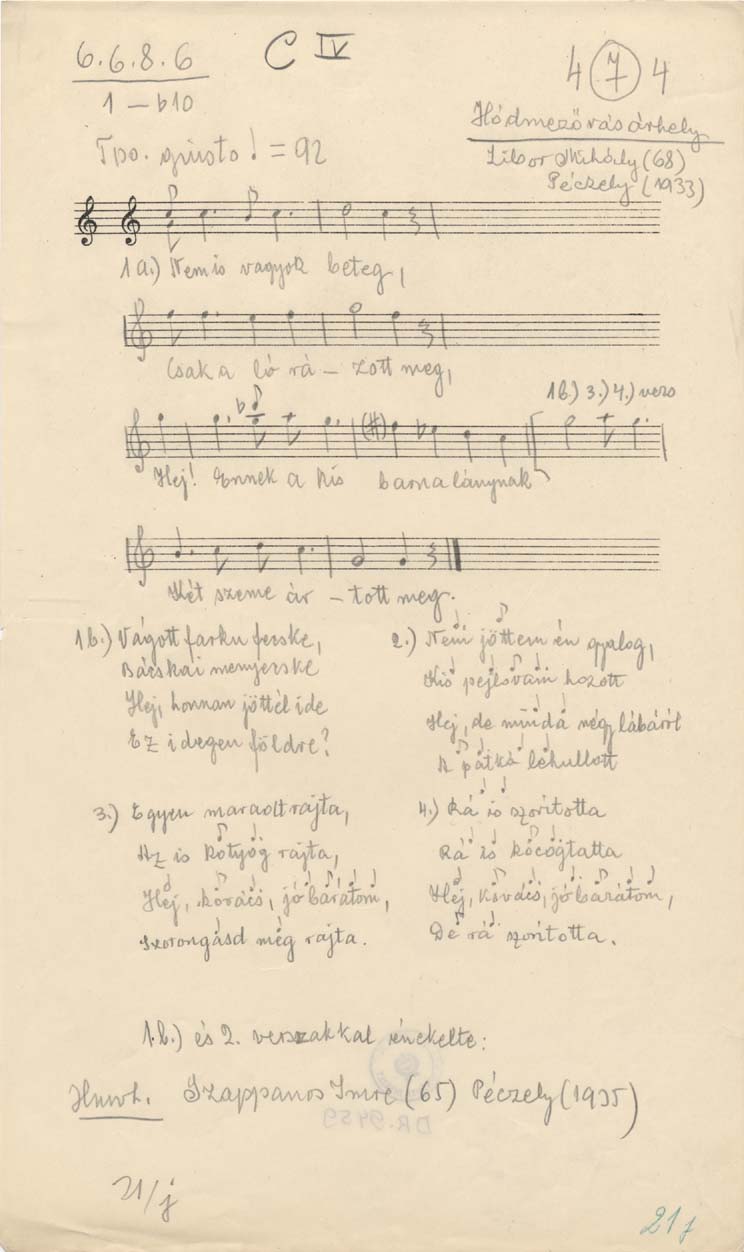 6.6.8.6 C IV
4 7 4
1 – b10
Hódmezővásárhely
Tpo. giusto ! = 92
Libor Mihály (68)
Péczely (1933)
1a.) Nem is vagyok beteg,
Csak a ló rá – zott meg,
1b.) 3.) 4.) vers
Hej! Ennek a kis barna lánynak
Két szeme ár – tott meg.
1b.) Vágott farku fecske,
Bácskai menyecske
Hej, honnan jöttél ide
Ez idegen földre?
2.) Nem jöttem én gyalog,
Kis pejlovam hozott
Hej, de mind a négy lábáról
A patkó lehullott
3.) Egyen maradt rajta,
Az is kotyog rajta,
Hej, kovács, jó barátom,
Szorongasd meg rajta.
4.) Rá is szorította
Rá is kocogtatta
Hej, kovács, jó barátom,
De rá szorította.
1.b.) és 2. verszakkal énekelte:
Hmvh. Szappanos Imre (65) Péczely (1935)
21/j
21 j